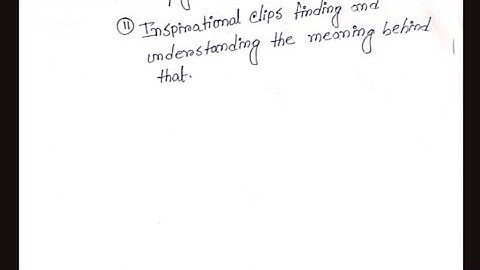 ⑪ Inspirational clips finding and
understanding the meaning behind
that.